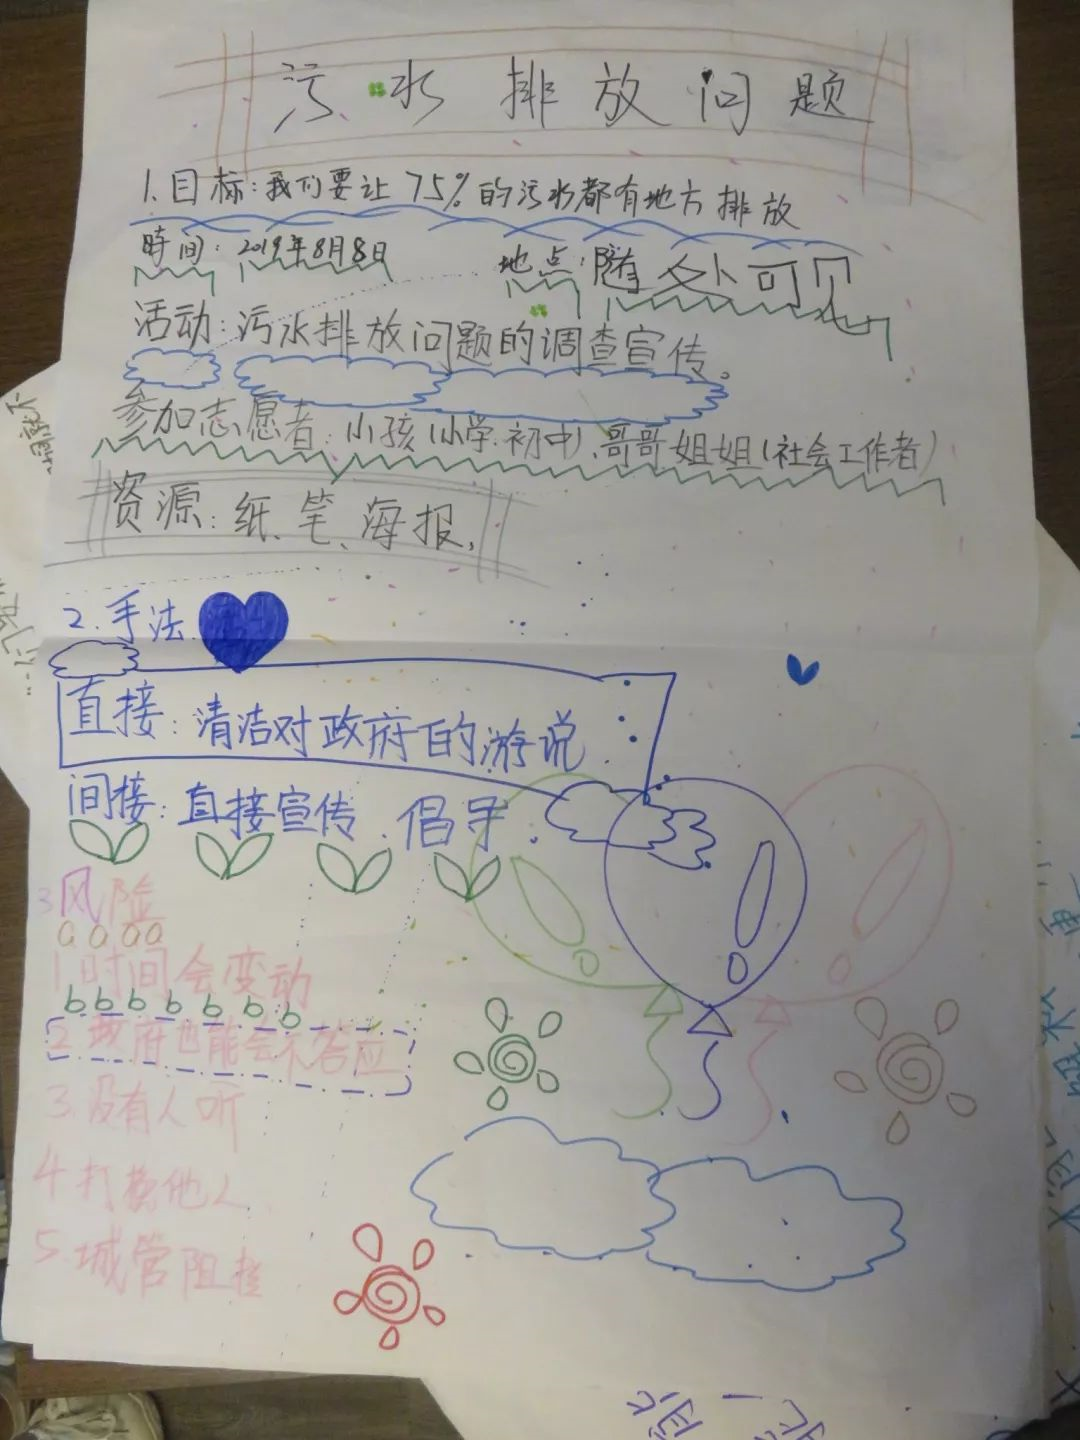 污水排放问题
1.目标:我们要让75%的污水都有地方排放
時间:2019年8月8日 地点:随处可见
活动:污水排放问题的调查宣传。
参加志愿者:小孩(小学.初中)、哥哥姐姐(社会工作者)
资源:纸、笔、海报,
2.手法
直接:清洁对政府的游说
间接:直接宣传.倡导.
3风险
1.时间会变动
2.政府也能会不答应
3.没有人听
4打扰他人
5.城管阻挠